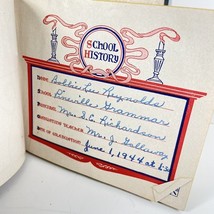 SCHOOL
HISTORY
NAME Bettie Lee Reynolds
SCHOOL Pineville Grammar
PRINCIPAL Mr. S. C. Richardson
GRADUATING TEACHER Mrs. J. Galloway
DATE OF GRADUATION June 1, 1944 at